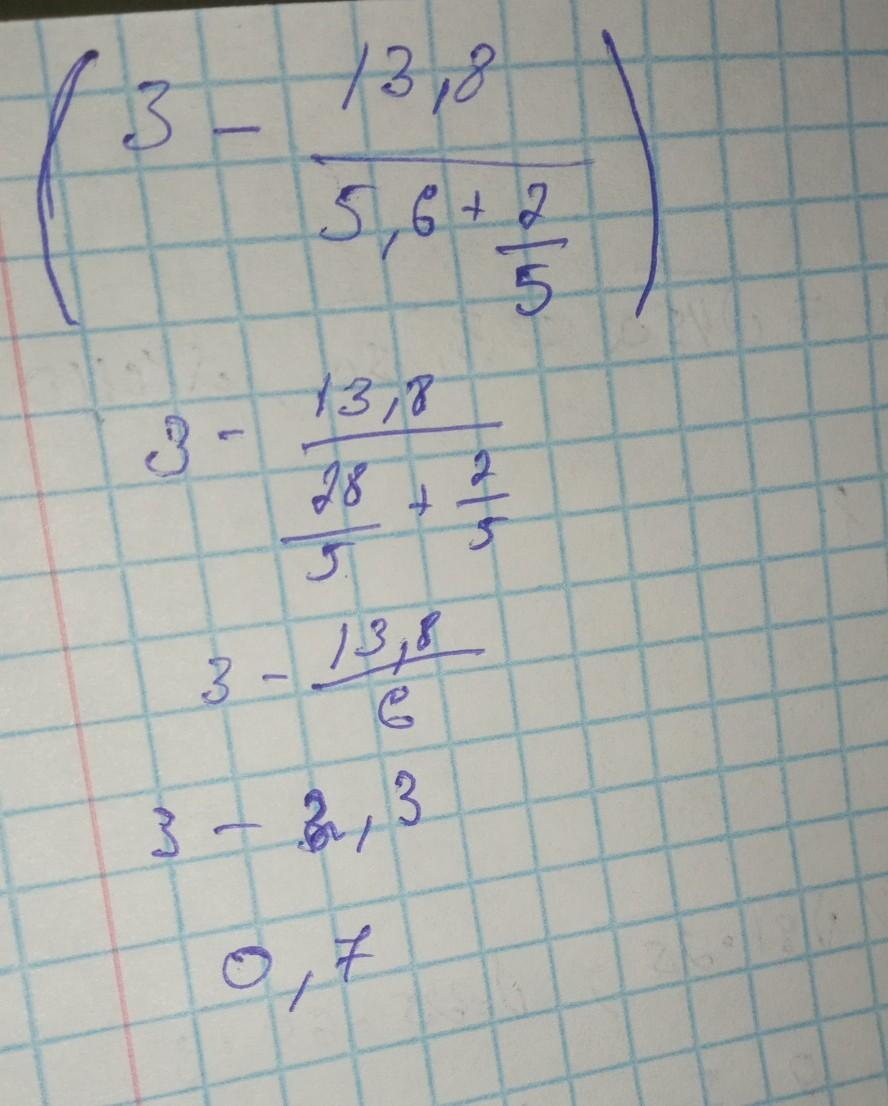 ( 3 - 13,8 / (5,6 + 2/5) )
3 - 13,8 / (28/5 + 2/5)
3 - 13,8/6
3 - 2,3
0,7